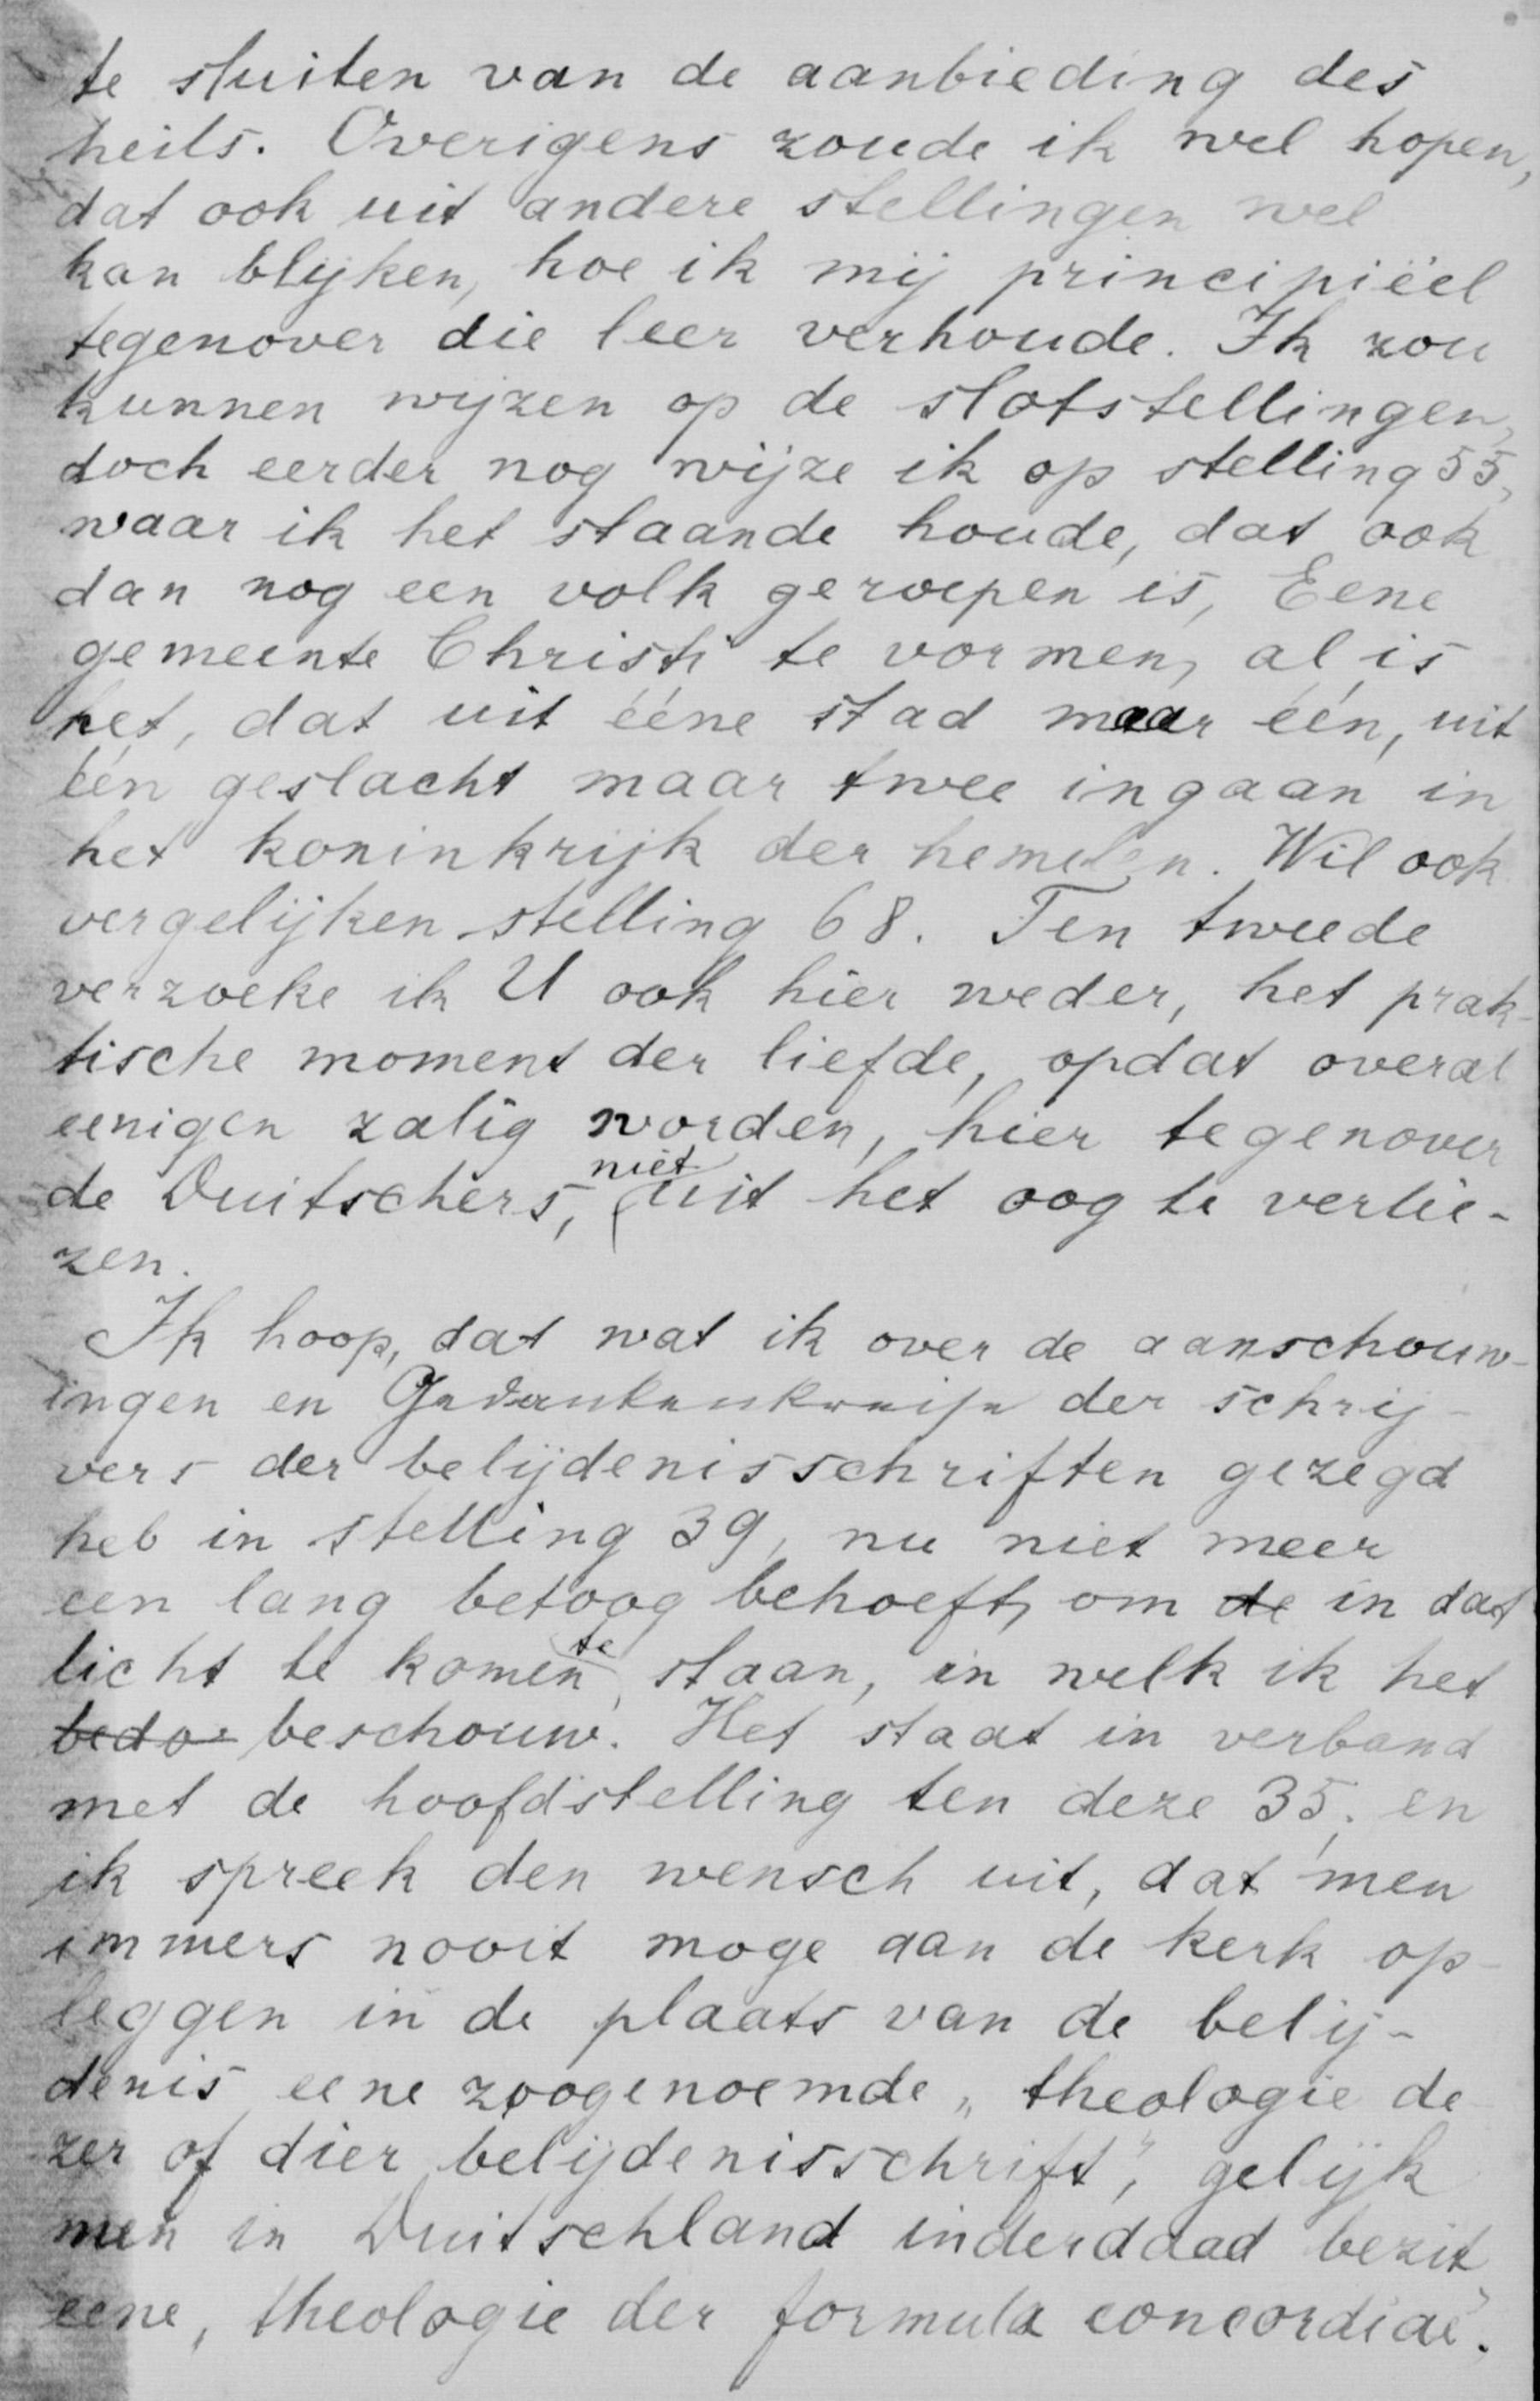 te sluiten van de aanbieding des
heils. Overigens zoude ik wel hopen,
dat ook uit andere stellingen wel
kan blijken, hoe ik mij principiëel
tegenover die leer verhoude. Ik zou
kunnen wijzen op de slotstellingen,
doch eerder nog wijze ik op stelling 55,
waar ik het staande houde, dat ook
dan nog een volk geroepen is, Eene
gemeente Christi te vormen, al is
het, dat uit ééne stad maar één, uit
één geslacht maar twee ingaan in
het koninkrijk der hemelen. Wil ook
vergelijken stelling 68. Ten tweede
verzoeke ik U ook hier weder, het prak-
tische moment der liefde, opdat overal
eenigen zalig worden, hier tegenover
de Duitschers, niet uit het oog te verlie-
zen.
Ik hoop, dat wat ik over de aanschouw-
ingen en Gedankenkreise der schrij-
vers der belijdenisschriften gezegd
heb in stelling 39, nu niet meer
een lang betoog behoeft, om de in dat
licht te komen te staan, in welk ik het
bedo beschouw. Het staat in verband
met de hoofdstelling ten deze 35; en
ik spreek den wensch uit, dat men
immers nooit moge aan de kerk op-
leggen in de plaats van de belij-
denis eene zoogenoemde „theologie de-
zer of dier belijdenisschrift", gelijk
men in Duitschland inderdaad bezit
eene „theologie der formula concordiae".